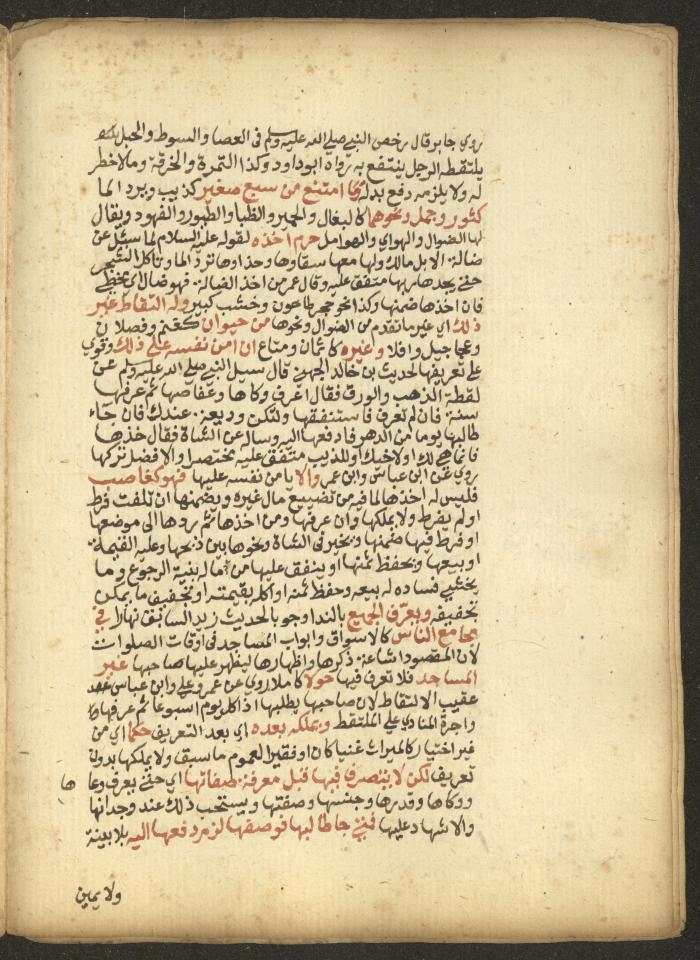 روي جابر قال رخص النبي صلي الله عليه وسلم في العصا والسوط والحبل
يلتقطه الرجل ينتفع به رواه ابو داود وكذا التمرة والخرقة وما لا خطر
له ولا يلزمه دفع بدله وما امتنع من سبع صغير كذيب ويرد الما
كثور وجمل ونحوهما كالبغال والحمير والظبا والطيور والفهود ويقال
لها الضوال والهوامي والهوامل حرم اخذه لقوله عليه السلام لما سئل عن
ضالة الابل مالك ولها معها سقاوها وحذاوها ترد الما وتاكل الشجر
حتي يجدها ربها متفق عليه وقال عمر من اخذ الضالة فهو ضال اي مخطي
فان اخذها ضمنها وكذا نحو حجر طاحون وخشب كبير وله التقاط غير
ذلك اي غير ما تقدم من الضوال ونحوها من حيوان كغنم وفصلان
وعجاجيل وافلا وغيره كاثمان ومتاع ان امن نفسه علي ذلك وقوي
علي تعريفها لحديث بن خالد الجهني قال سيل النبي صلي الله عليه ولم عن
لقطة الذهب والورق فقال اعرف وكاها وعفاصها ثم عرفها
سنة فان لم تعرف فاستنفقها ولتكن وديعة عندك فان جاء
طالبها يوما من الدهر فادفعها اليه وسال عن الشاة فقال خذها
فانما هي لك او لاخيك او للذيب متفق عليه مختصرا والافضل تركها
روي عن ابن عباس وابن عمر والا يامن نفسه عليها فهو كغاصب
فليس له اخذها لما فيه من تضييع مال غيره ويضمنها ان تلفت فرط
او لم يفرط ولا يملكها وان عرفها ومن اخذها ثم ردها الي موضعها
او فرط فيها ضمنها ويخير في الشاة ونحوها بين ذبحها وعليه القيمة
او بيعها ويحفظ ثمنها او ينفق عليها من ماله بنية الرجوع وما
يخشي فساده له بيعه وحفظ ثمنه او اكله بقيمته او تجفيف ما يمكن
تجفيفه ويعرف الجميع بالندا وجوبا لحديث زيد السابق نهارا في
مجامع الناس كالاسواق وابواب المساجد في اوقات الصلوات
لان المقصود اشاعة ذكرها واظهارها ليظهر عليها صاحبها غير
المساجد فلا تعرف فيها حولا كاملا روي عن عمر وعلي وابن عباس
عقيب الالتقاط لان صاحبها يطلبها اذا كل يوم اسبوعا ثم عرفها
واجرة المنادي علي الملتقط ويملكه بعده اي بعد التعريف حكما اي من
غير اختيار كالميراث غنيا كان او فقيرا لعموم ما سبق ولا يملكها بدون
تعريف لكن لا يتصرف فيها قبل معرفة صفاتها اي حتي يعرف وعا
ها
ووكاها وقدرها وجنسها وصفتها ويستحب ذلك عند وجدانها
والاشهاد عليها فمتي جا طالبها فوصفها لزم دفعها اليه بلا بينة
ولا يمين